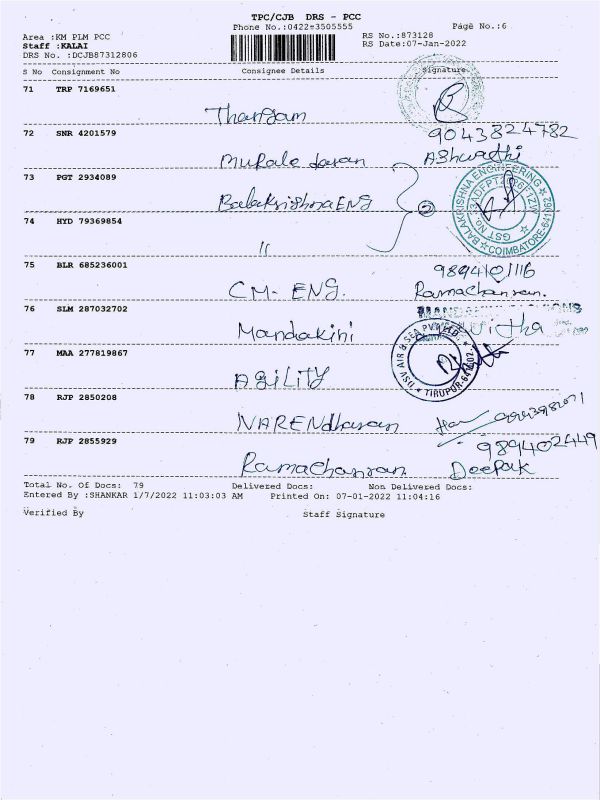 TPC/CJB DRS - PCC
Phone No.:0422-3505555
Page No.:6
Area :KM PLM PCC
RS No.:873128
Staff :KALAI
RS Date:07-Jan-2022
DRS No. :DCJB87312806
S No Consignment No Consignee Details Signature
71 TRP 7169651
Thangam
72 SNR 4201579
9043824782
Muraledaran Ashwathi
73 PGT 2934089
Balakrishna ENG
2
BALAKRISHNA ENGINEERING
COIMBATORE-641062
74 HYD 79369854
"
75 BLR 685236001
CM- ENG.
Ramachanran.
76 SLM 287032702
Mandakini
77 MAA 277819867
AGILITY
DSV AIR & SEA PVT LTD.
TIRUPUR-641602
78 RJP 2850208
NARENdharan
79 RJP 2855929
9894402449
Ramachanran Deepak
Total No. Of Docs: 79 Delivered Docs: Non Delivered Docs:
Entered By :SHANKAR 1/7/2022 11:03:03 AM Printed On: 07-01-2022 11:04:16
Verified By Staff Signature